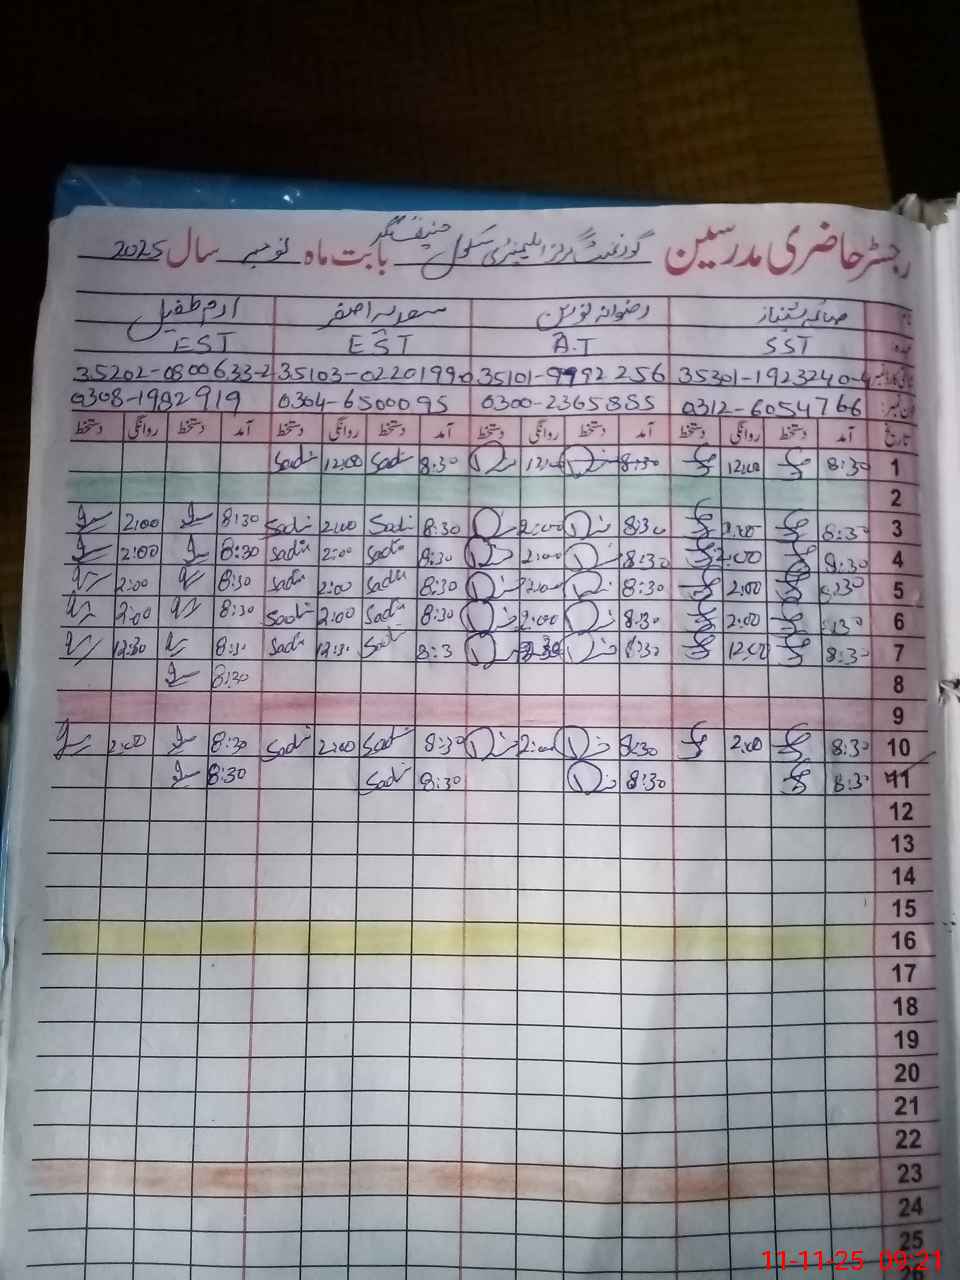 رجسٹر حاضری مدرسین گورنمنٹ گرلز ایلیمنٹری سکول بابت ماہ نومبر سال 2025
نام صائمہ شہناز رضوانہ نورین سعدیہ اصغر ارم طفیل
عہدہ SST A.T EST EST
35301-1923240-4 35101-9992256 35103-0220199 35202-0800633-2
فون نمبر: 0312-6054766 0300-2365885 0304-6500095 0308-1992919
تاریخ آمد دستخط روانگی دستخط آمد دستخط روانگی دستخط آمد دستخط روانگی دستخط آمد دستخط روانگی دستخط
1 8:30 12:00 8:30 8:30 Sadi 12:00 Sadi
2
3 8:30 2:00 8:30 2:00 8:30 Sadi 2:00 Sadi 8:30 2:00
4 8:30 2:00 8:30 2:00 8:30 Sadi 2:00 Sadi 8:30 2:00
5 8:30 2:00 8:30 2:00 8:30 Sadi 2:00 Sadi 8:30 2:00
6 8:30 2:00 8:30 2:00 8:30 Sadi 2:00 Sadi 8:30 2:00
7 8:30 12:00 8:30 8:3 Sadi 12:30 Sadi 8:30 12:30
8 8:30
9
10 8:30 2:00 8:30 2:00 8:30 Sadi 2:00 Sadi 8:30 2:00
11 8:30 8:30 8:30 Sadi 8:30
12
13
14
15
16
17
18
19
20
21
22
23
24
25
11-11-25 09:21